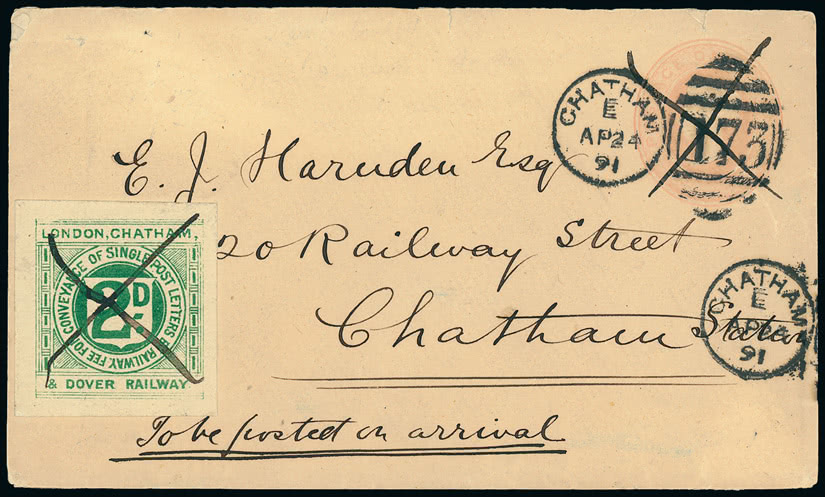 CHATHAM
E
AP 24
91
173
E. J. Harnden Esq
20 Railway Street
Chatham Station
To be posted on arrival
LONDON, CHATHAM,
CONVEYANCE OF SINGLE POST LETTERS BY RAILWAY. FEE FOR
2D.
& DOVER RAILWAY
CHATHAM
E
AP 24
91